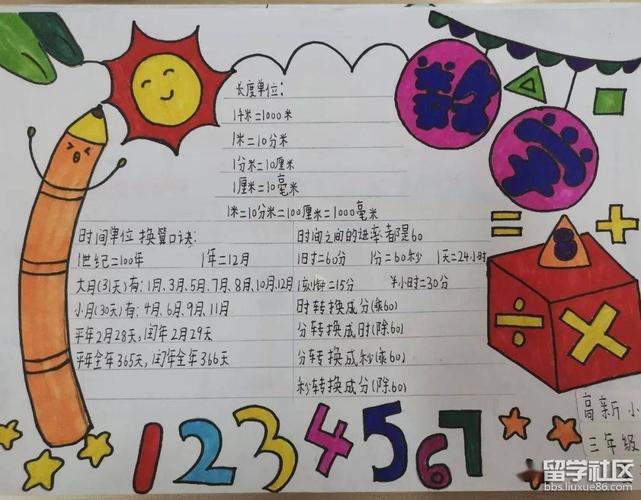 数学
长度单位:
1千米=1000米
1米=10分米
1分米=10厘米
1厘米=10毫米
1米=10分米=100厘米=1000毫米
时间单位换算口诀:
1世纪=100年 1年=12月
大月(31天)有:1月、3月、5月、7月、8月、10月、12月
小月(30天)有:4月、6月、9月、11月
平年2月28天,闰年2月29天
平年全年365天,闰年全年366天
时间之间的进率都是60
1时=60分 1分=60秒 1天=24小时
1刻钟=15分 半小时=30分
时转换成分(乘60)
分转换成时(除60)
分转换成秒(乘60)
秒转换成分(除60)
= +
8
÷ ×
1 2 3 4 5 6 7
高新小
三年级
留学社区
bbs.liuxue86.com